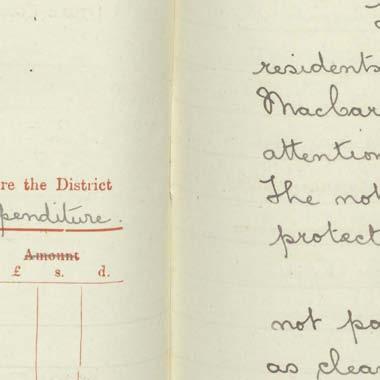 re the District
penditure.
Amount
£ s. d.
residents
MacCar
attention
The not
protect
not pa
as clear